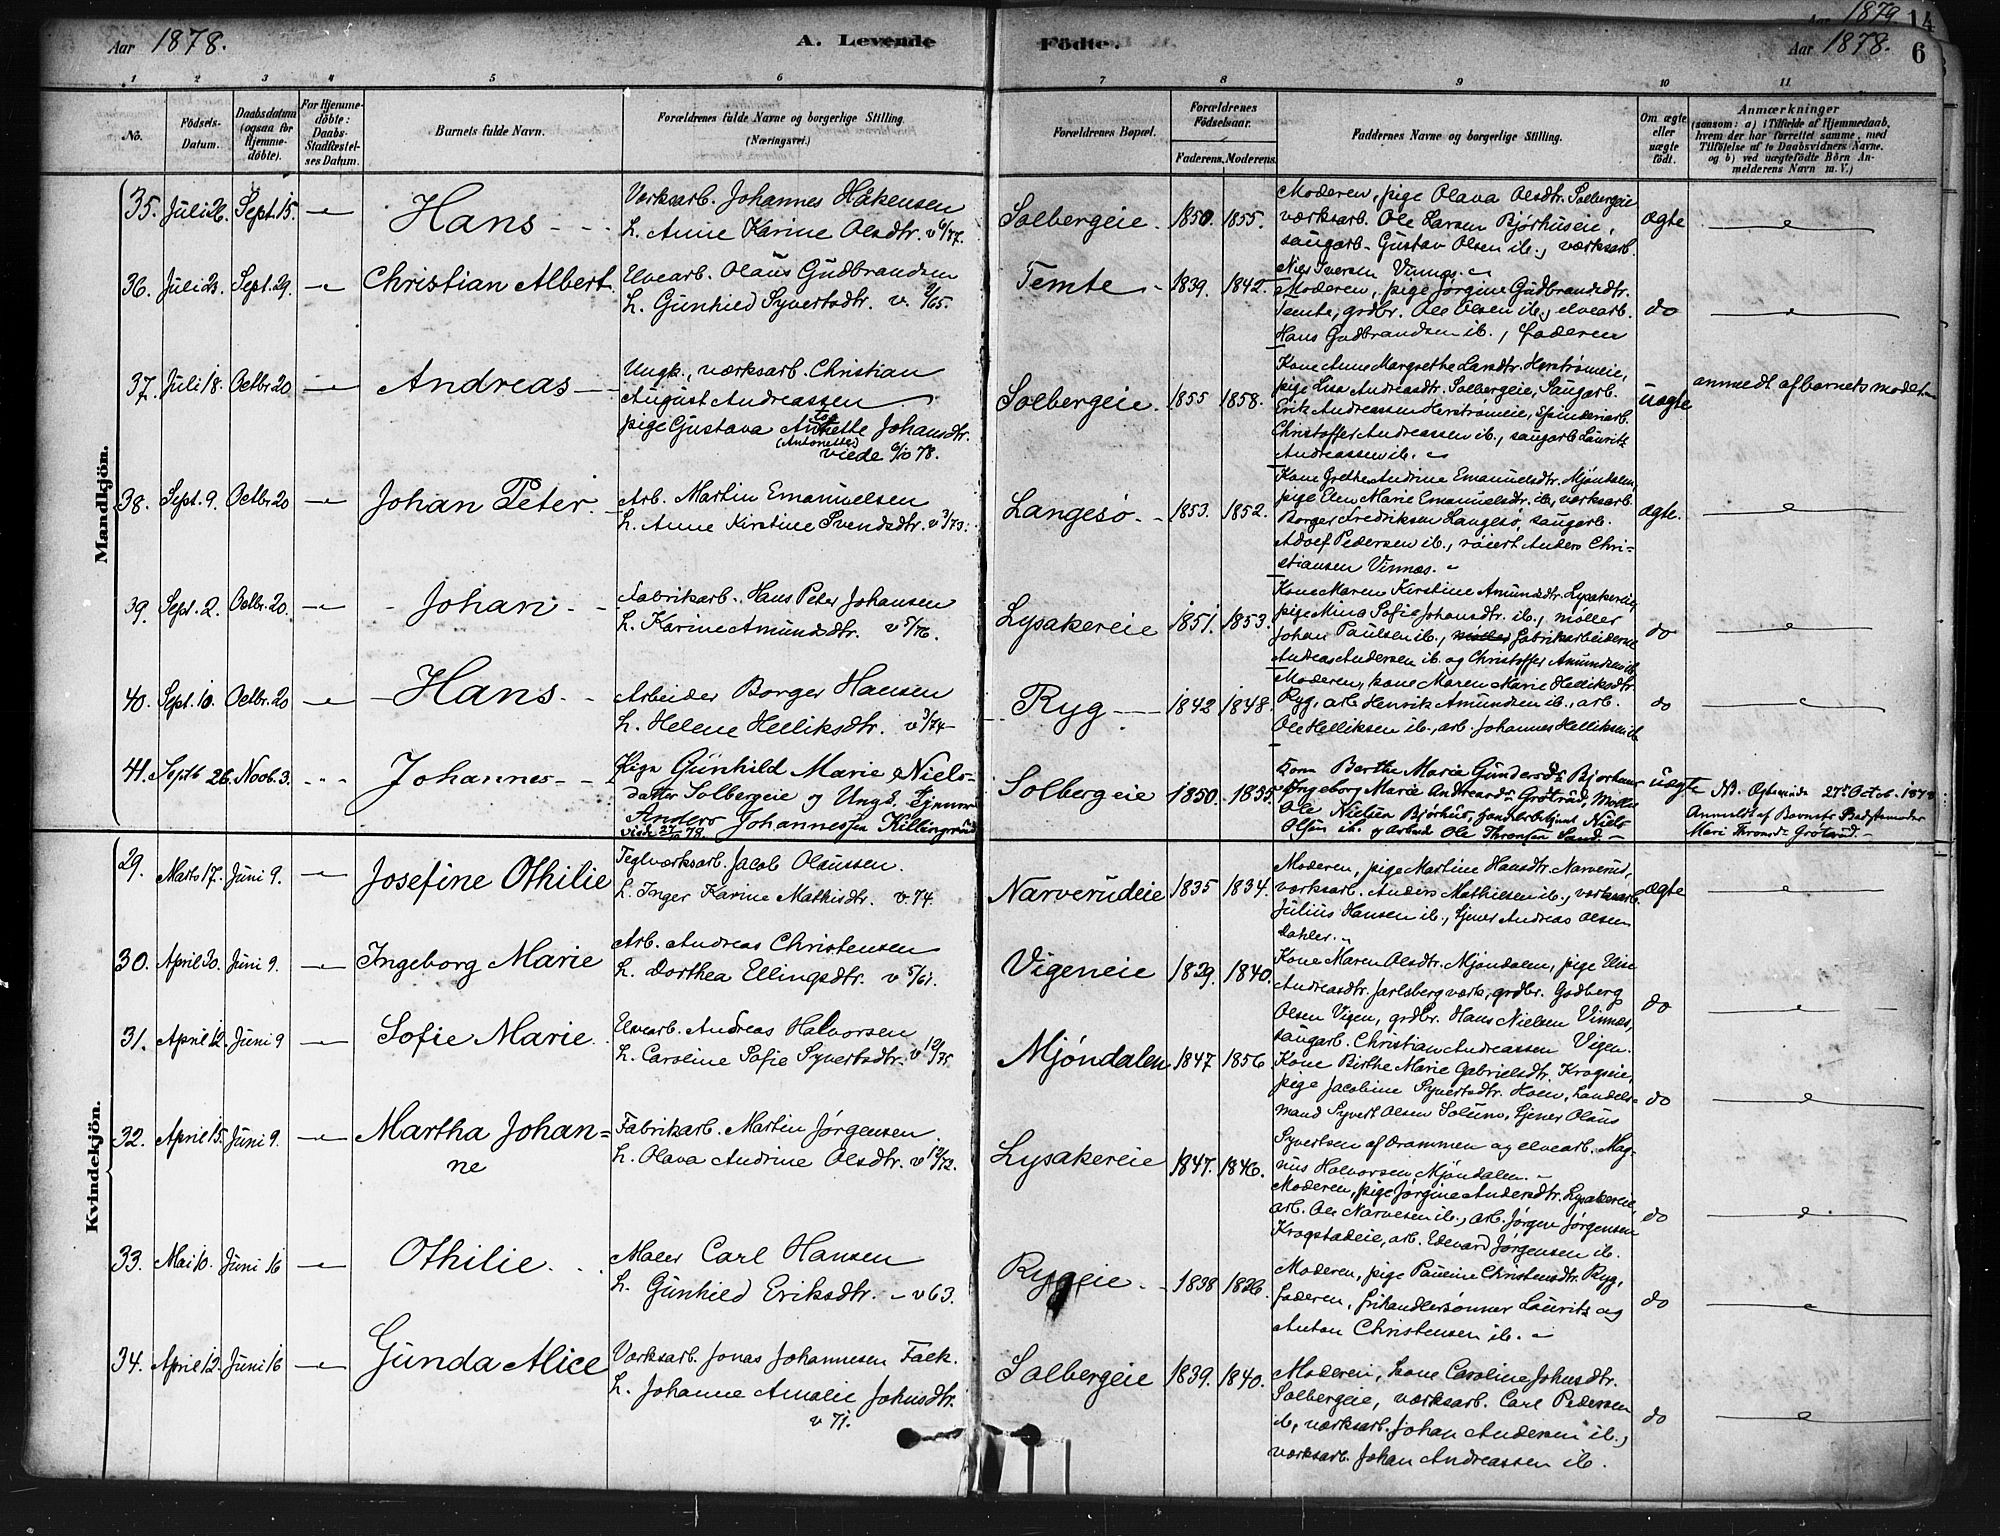 Aar 1878.
A. Levende
Födte.
Aar 1879
14
Aar 1878.
6
1 2 3 4 5 6 7 8 9 10 11
No.
Födsels-
Datum.
Daabsdatum
(ogsaa for
Hjemme-
döbte).
For Hjemme-
döbte:
Daabs-
Stadfæstel-
ses Datum.
Barnets fulde Navn.
Forældrenes fulde Navne og borgerlige Stilling.
(Næringsvei.)
Forældrenes Bopæl.
Forældrenes
Födselsaar.
Faderens. Moderens.
Faddernes Navne og borgerlige Stilling.
Om ægte
eller
uægte
födt.
Anmærkninger
(saasom: a) i Tilfælde af Hjemmedaab,
hvem der har forrettet samme, med
Tilföielse af to Daabsvidners Navne,
og b) ved uægtefödte Börn An-
melderens Navn m. V.)
Mandkjön.
35. Juli 26. Sept. 15. Hans
Værksarb. Johannes Håkensen
h. Anne Karine Olsdtr. v 6/77.
Solbergeie. 1850. 1855.
Moderen, pige Olava Olsdtr. Solbergeie
værksarb. Ole Larsen Bjørhuseie,
saugarb. Gustav Olsen ib., værksarb.
Niels Iversen Vinnæs.
ægte
36. Juli 23. Sept. 29. Christian Albert
Elvearb. Olaus Gudbrandsen
h. Gunhild Syvertsdtr. v. 9/65.
Temte 1839. 1842.
Moderen, pige Jørgine Gudbrandsdtr.
Temte, grdbr. Ole Olsen ib., elvearb.
Hans Gudbrandsen ib., Faderen
do
37. Juli 18. Octbr. 20 Andreas
Ungk., værksarb. Christian
August Andreassen
pige Gustava Johansdtr.
(Antonette)
viede 6/10 78.
Solbergeie. 1855 1858.
Kone Anne Margrethe Larsdtr. Herstrømeie,
pige Lisa Andreasdtr. Solbergeie, Saugarb.
Erik Andreassen Herstrømeie, Spinderiarb.
Christoffer Andreassen ib., saugarb. Lauritz
Andreassen ib.
uægte
anmeldt af barnets moder
38. Sept. 9. Octbr. 20 Johan Peter
Arb. Martin Emanuelsen
h. Anne Kirstine Svendsdtr. v 3/73.
Langesø 1853. 1852.
Kone Grethe Andrine Emanuelsdtr. Mjøndalen,
pige Elen Marie Emanuelsdtr. ib., værksarb.
Borger Fredriksen Langesø, saugarb.
Adolf Pedersen ib., røiert Anders Chri-
stiansen Vinnæs.
ægte.
39. Sept. 2. Octbr. 20. Johan
Fabrikarb. Hans Peter Johansen
h. Karine Amundsdtr. v 5/76.
Lysakereie 1851. 1853.
Kone Maren Kirstine Amundsdtr. Lysakereie,
pige Mina Sofie Johansdtr. ib., møller
Johan Paulsen ib., møller fabrikarbeiderne
Andreas Andersen ib. og Christoffer Amundsen ib.
do
40. Sept. 10. Octbr. 20 Hans
Arbeider Borger Hansen
h. Helene Helliksdtr. v 3/74
Ryg 1842 1848.
Moderen, kone Maren Marie Helliksdtr.
Ryg, arb. Henrik Amundsen ib., arb.
Ole Helliksen ib., arb. Johannes Helliksen ib
do
41. Septb 26. Novb. 3. Johannes
Pige Gunhild Marie Niels-
datter Solbergeie og Ungk. Tjener
Anders Johannessen Killingrud
Solbergeie 1850. 1855.
Kone Berthe Marie Gundersdr Bjørhuus
Ingeborg Marie Andreasdr Grøtrud, Møller
Ole Nielsen Bjørhus, Niels
Olsen ib. og Arbeider Ole Thronsen Sand.
uægte
NB. 27de Octob. 1878
Anmeldt af Barnets Bedstemoder
Mari Thronsdr Grøtrud.
Kvindekjön.
29. Marts 17. Juni 9. Josefine Othilie
Teglværksarb. Jacob Olaussen.
h. Inger Karine Mathisdtr. v. 74.
Narverudeie 1835 1834.
Moderen, pige Martine Hansdtr. Narverud,
værksarb. Anders Mathisen ib., værksarb.
Julius Hansen ib., tjener Andreas Olsen
Dahler.
ægte
30. April 30. Juni 9. Ingeborg Marie
Arb. Andreas Christensen
h. Dorthea Ellingsdtr. v 5/61.
Vigeneie 1839. 1840.
Kone Maren Olsdtr. Mjøndalen, pige Elise
Andreasdtr. Jarlsberg værk, grdbr. Godberg
Olsen Vigen, grdbr. Hans Nielsen Vinnæs,
saugarb. Christian Andreassen Vigen.
do
31. April 12. Juni 9 Sofie Marie
Elvearb. Andreas Halvorsen
h. Caroline Sofie Syvertsdtr. v 12/75
Mjøndalen 1847 1856
Kone Birthe Marie Gabrielsdtr. Krogseie,
pige Jacobine Syvertsdtr. Hoen, Landels-
mand Syvert Olsen Solum, tjener Olaus
Syvertsen af Drammen og elvearb. Mag-
nus Halvorsen Mjøndalen.
do
32. April 15. Juni 9. Martha Johan-
ne
Fabrikarb. Martin Jørgensen
h. Olava Andrine Olsdtr. v 12/72.
Lysakereie 1847. 1846.
Moderen, pige Jørgine Andersdtr. Lysakereie,
arb. Ole Narvesen ib., arb. Jørgen Jørgensen
Krogstadeie, arb. Edevard Jørgensen ib.
do
33. Mai 10. Juni 16 Othilie
Maler Carl Hansen
h. Gunhild Eriksdtr. v 63.
Rygeie 1838 1836.
Moderen, pige Pauline Christensdtr. Ryg,
faderen, frihandlersønner Lauritz og
Anton Christensen ib.
do
34. April 12. Juni 16 Gunda Alice
Værksarb. Jonas Johannesen Falk.
h. Johanne Amalie Johnsdtr.
v 71.
Solbergeie 1839. 1840.
Moderen, kone Caroline Johnsdtr.
Solbergeie, værksarb. Carl Pedersen
ib, værksarb. Johan Andersen ib.,
værksarb. Johan Andreassen ib.
do